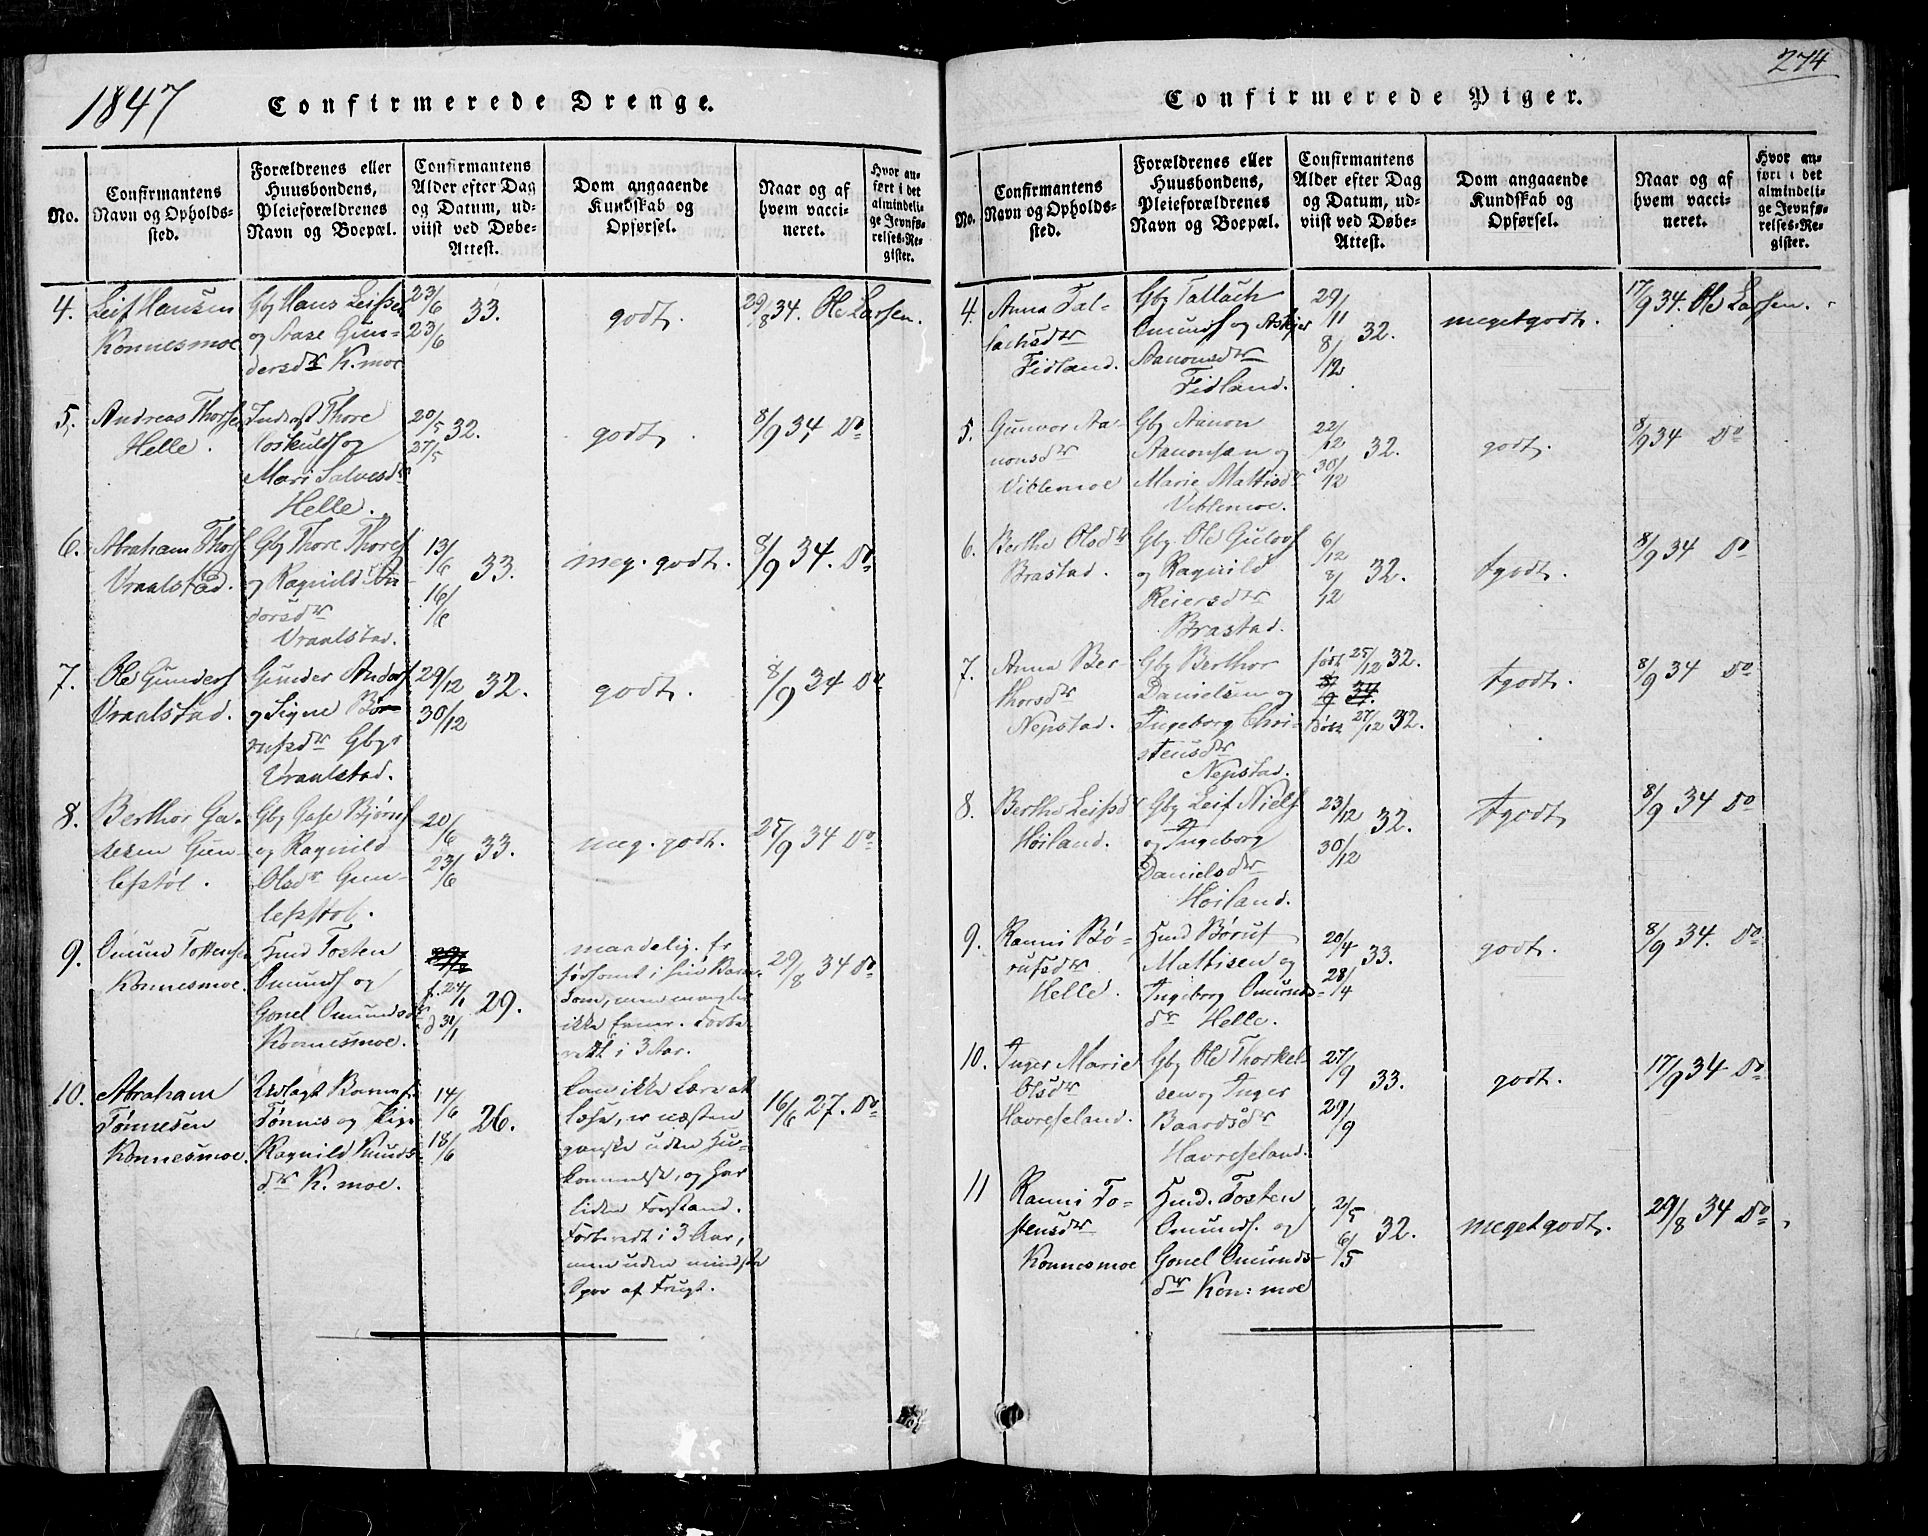 1847
Confirmerede Drenge.
No.
Confirmantens
Navn og Opholds-
sted.
Forældrenes eller
Huusbondens,
Pleieforældrenes
Navn og Boepæl.
Confirmantens
Alder efter Dag
og Datum, ud-
viist ved Døbe-
Attest.
Dom angaaende
Kundskab og
Opførsel.
Naar og af
hvem vacci-
neret.
Hvor an-
ført i det
almindeli-
ge Jevnfø-
relses-Re-
gister.
4.
Leif Hansen
Konnesmoe
Gbr Hans Leifsen
og Aase Gun-
dersdr K.moe
23/6
23/6
33.
godt.
29/8 34. Ole Larsen.
5.
Andreas Thorsen
Helle.
Inderst Thore
Toskulds og
Mari Salvesdr
Helle.
20/5
27/5
32.
godt.
8/9 34 Do
6.
Abraham Thors
Vraalstad.
Gbr Thore Thores
og Ragnild An-
dorsdr
Vraalstad.
13/6
16/6
33.
meg. godt.
8/9 34. Do
7.
Ole Gunders
Vraalstad.
Gunder Andors
og Signe Bø-
rufsdr Gbr
Vraalstad.
29/12
30/12
32.
godt.
8/9 34 Do
8.
Berthor Ga-
sesen Gun-
lefstøl.
Gbr Gase Bjørns
og Ragnild
Olsdr Gun-
lefstøl.
20/6
23/6
33.
meg. godt.
25/9 34 Do
9.
Omund Tostensen
Konnesmoe.
Hmd Tosten
Omunds og
Gonel Omundsdr
Konnesmoe.
f. 24/1
d 31/1
29.
maadelig. er
forsomt i sin Barn-
dom, men mangler
ikke Evner. Forbe-
redt i 3 Aar.
29/8 34 Do
10.
Abraham
Tønnesen
Konnesmoe.
Udlagt Barnefr
Tønnis og Pige
Ragnild Knuds-
dr K.moe.
14/6
18/6
26.
kan ikke lære at
læse, er næsten
ganske uden Hu-
kommelse, og har
liden Forstand.
Forberedt i 3 Aar,
men uden mindste
Spor af Frugt.
16/6 27. Do
274
Confirmerede Piger.
No.
Confirmantens
Navn og Opholds-
sted.
Forældrenes eller
Huusbondens,
Pleieforældrenes
Navn og Boepæl.
Confirmantens
Alder efter Dag
og Datum, ud-
viist ved Døbe-
Attest.
Dom angaaende
Kundskab og
Opførsel.
Naar og af
hvem vacci-
neret.
Hvor an-
ført i det
almindeli-
ge Jevnfø-
relses-Re-
gister.
4.
Anna Tal-
lachsdr
Fidland.
Gbr Tallach
Omunds og Askjer
Aanonsdr
Fidland.
29/11
8/12
32.
megetgodt.
17/9 34. Ole Larsen.
5.
Gunvor Aa-
nonsdr
Viblemoe
Gbr Aanon
Aanonsen og
Marie Mattisdr
Viblemoe.
22/12
30/12
32.
godt.
8/9 34 Do
6.
Berthe Olsdr
Brastad.
Gbr. Ole Gulovs
og Ragnild
Reiersdr
Brastad.
6/12
8/12
32.
tgodt.
8/9 34 Do
7.
Anna Ber-
thorsdr
Nepstad.
Gbr Berthor
Danielsen og
Ingeborg Chri-
stensdr
Nepstad.
født 25/12 32.
8/9 34.
døbt 27/12 32.
tgodt.
8/9 34 Do
8.
Berthe Leifsdr
Høiland.
Gbr Leif Niels
og Ingeborg
Danielsdr
Høiland.
23/12
30/12
32.
tgodt
8/9 34 Do
9.
Ranni Bø-
rufsdr
Helle.
Hmd Børuf
Mattisen og
Ingeborg Omunds-
dr Helle.
20/4
28/4
33.
godt.
8/9 34. Do
10.
Inger Marie
Olsdr
Havreseland.
Gbr Ole Thorkel-
sen og Inger
Baardsdr
Havreseland.
27/9
29/9
33.
godt.
17/9 34 Do
11
Ranni To-
stensdr
Konnesmoe
Hmd. Tosten
Omunds. og
Gonel Omunds-
dr Kon: moe
2/5
6/5
32.
megetgodt.
29/8 34 Do